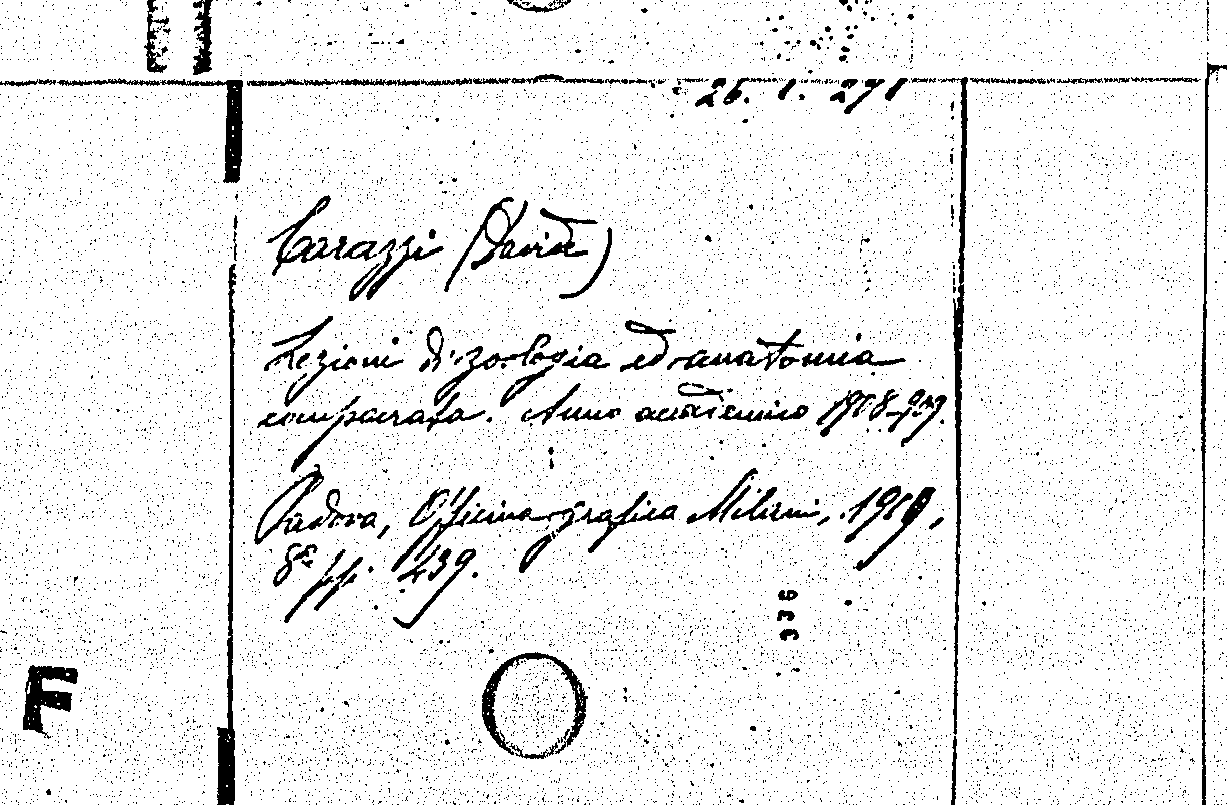 26. 1. 271
Carazzi (Davide)
Lezioni di zoologia ed anatomia
comparata. Anno accademico 1908-909.
Padova, Officina grafica Milani, 1909,
8° pp. 439.
336
F